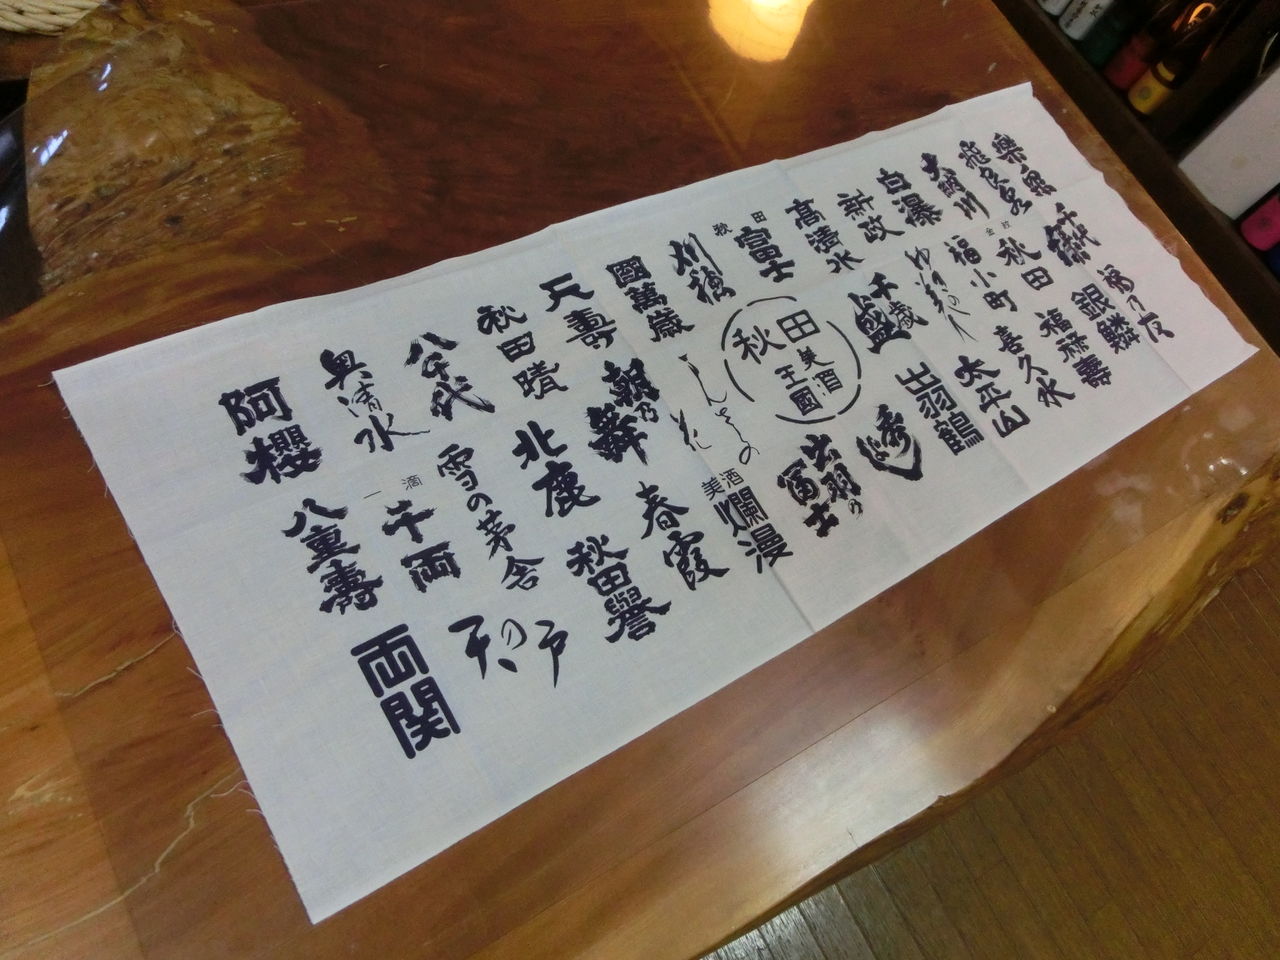 飛良泉
千代緑
福乃友
大納川
金紋
秋田
銀鱗
白瀑
福小町
福禄壽
新政
ゆきの美人
喜久水
高清水
千歳盛
太平山
秋田
富士
出羽鶴
刈穂
秋田
美酒
王國
國萬歳
まんさくの花
出羽の冨士
天壽
朝乃舞
美酒
爛漫
秋田晴
北鹿
春霞
八千代
雪の茅舎
秋田譽
奥清水
一滴
千両
天の戸
阿櫻
八重壽
両関